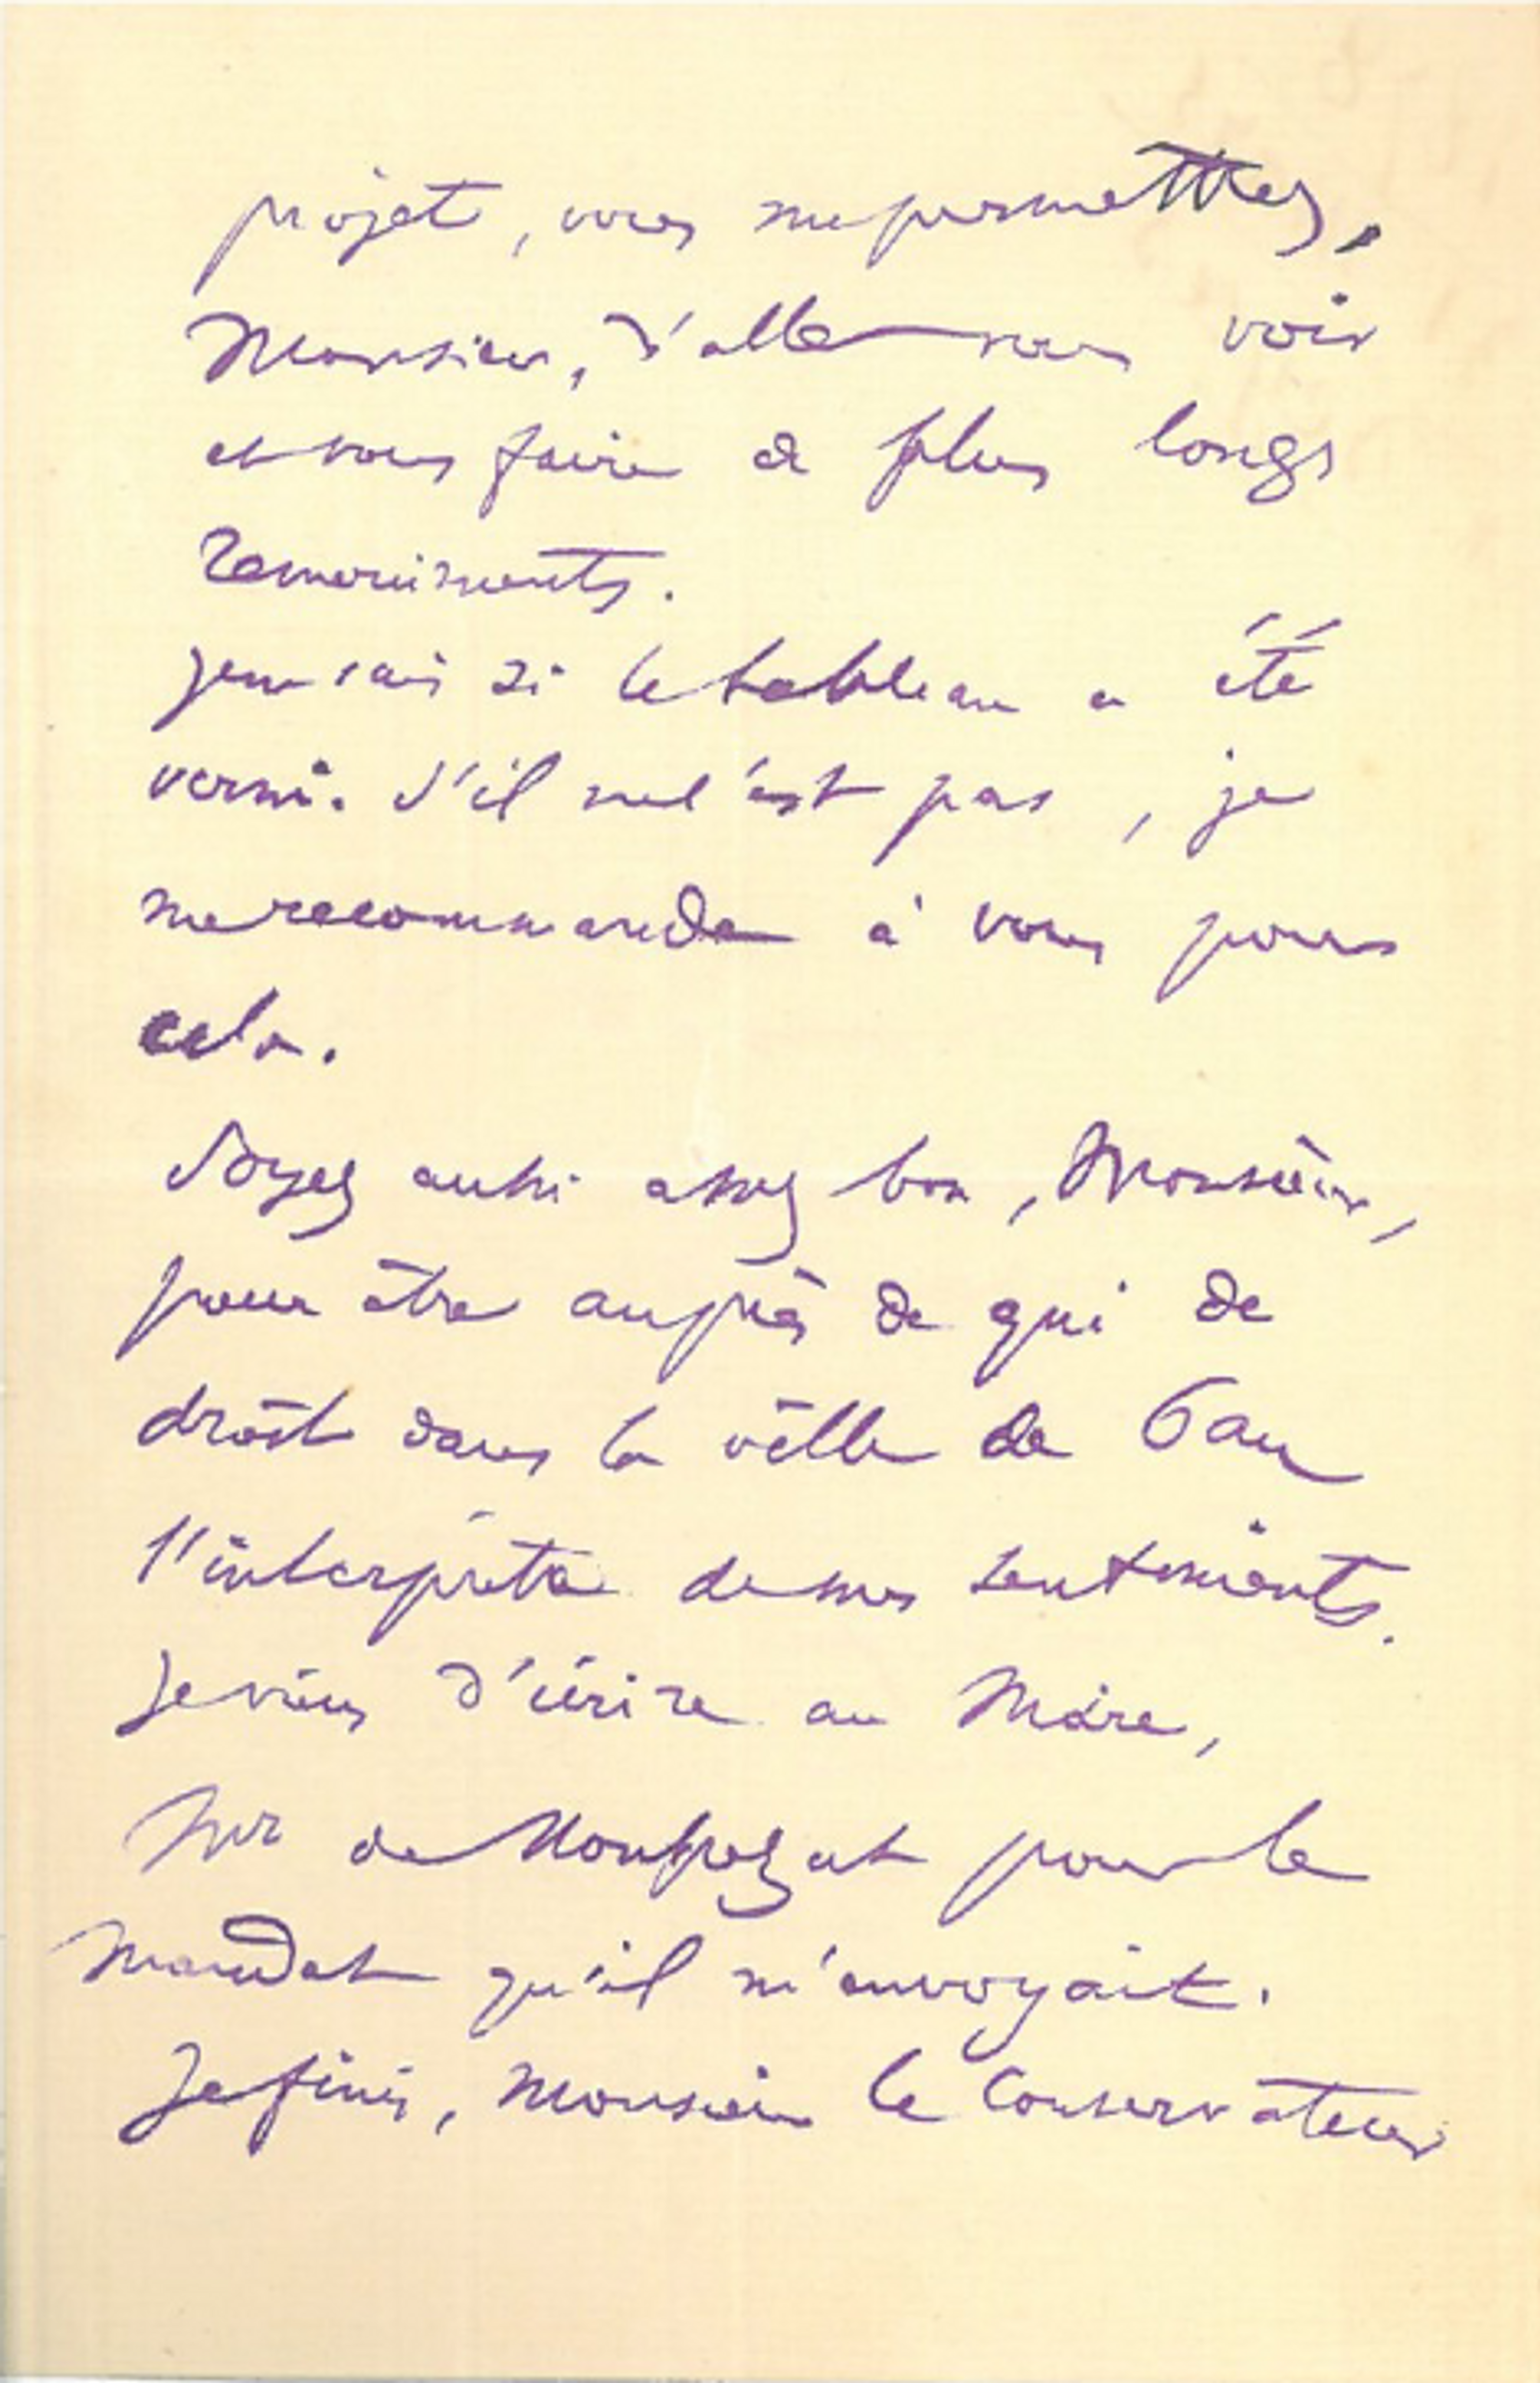 projet, vous me permettrez,
Monsieur, d'aller vous voir
et vous faire de plus longs
remerciments.
Je ne sais si le tableau a été
verni. S'il ne l'est pas, je
me recommande à vous pour
cela.
Soyez aussi assez bon, Monsieur,
pour être auprès de qui de
droit dans la ville de Pau
l'interprète de mes sentiments.
Je viens d'écrire au Maire,
Mr de Monpezat pour le
mandat qu'il m'envoyait.
Je finis, Monsieur le Conservateur